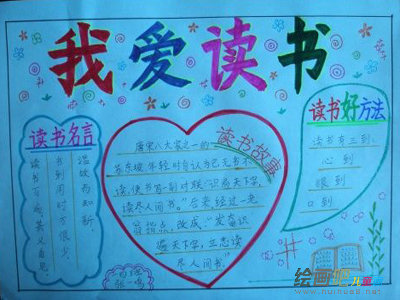 我爱读书
读书名言
温故而知新。
书到用时方恨少
读书百遍其义自见。
读书故事
唐宋八大家之一的
苏东坡年轻时自认为已无书不
读,便书写一副对联"识遍天下字,
读尽人间书。"后来经过一
指点,改成:"发奋识
遍天下字,立志读
尽人间书。"
读书好方法
读书有三到:
心到
眼到
口到
绘画吧儿童
www.huihua8.net